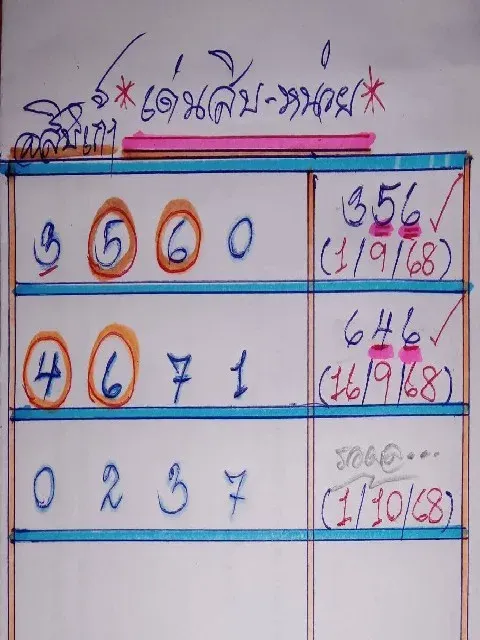 *เด่นสิบ-หน่วย*
3 5 6 0
356 ✓
(1/9/68)
4 6 7 1
646 ✓
(16/9/68)
0 2 3 7
รอผล...
(1/10/68)